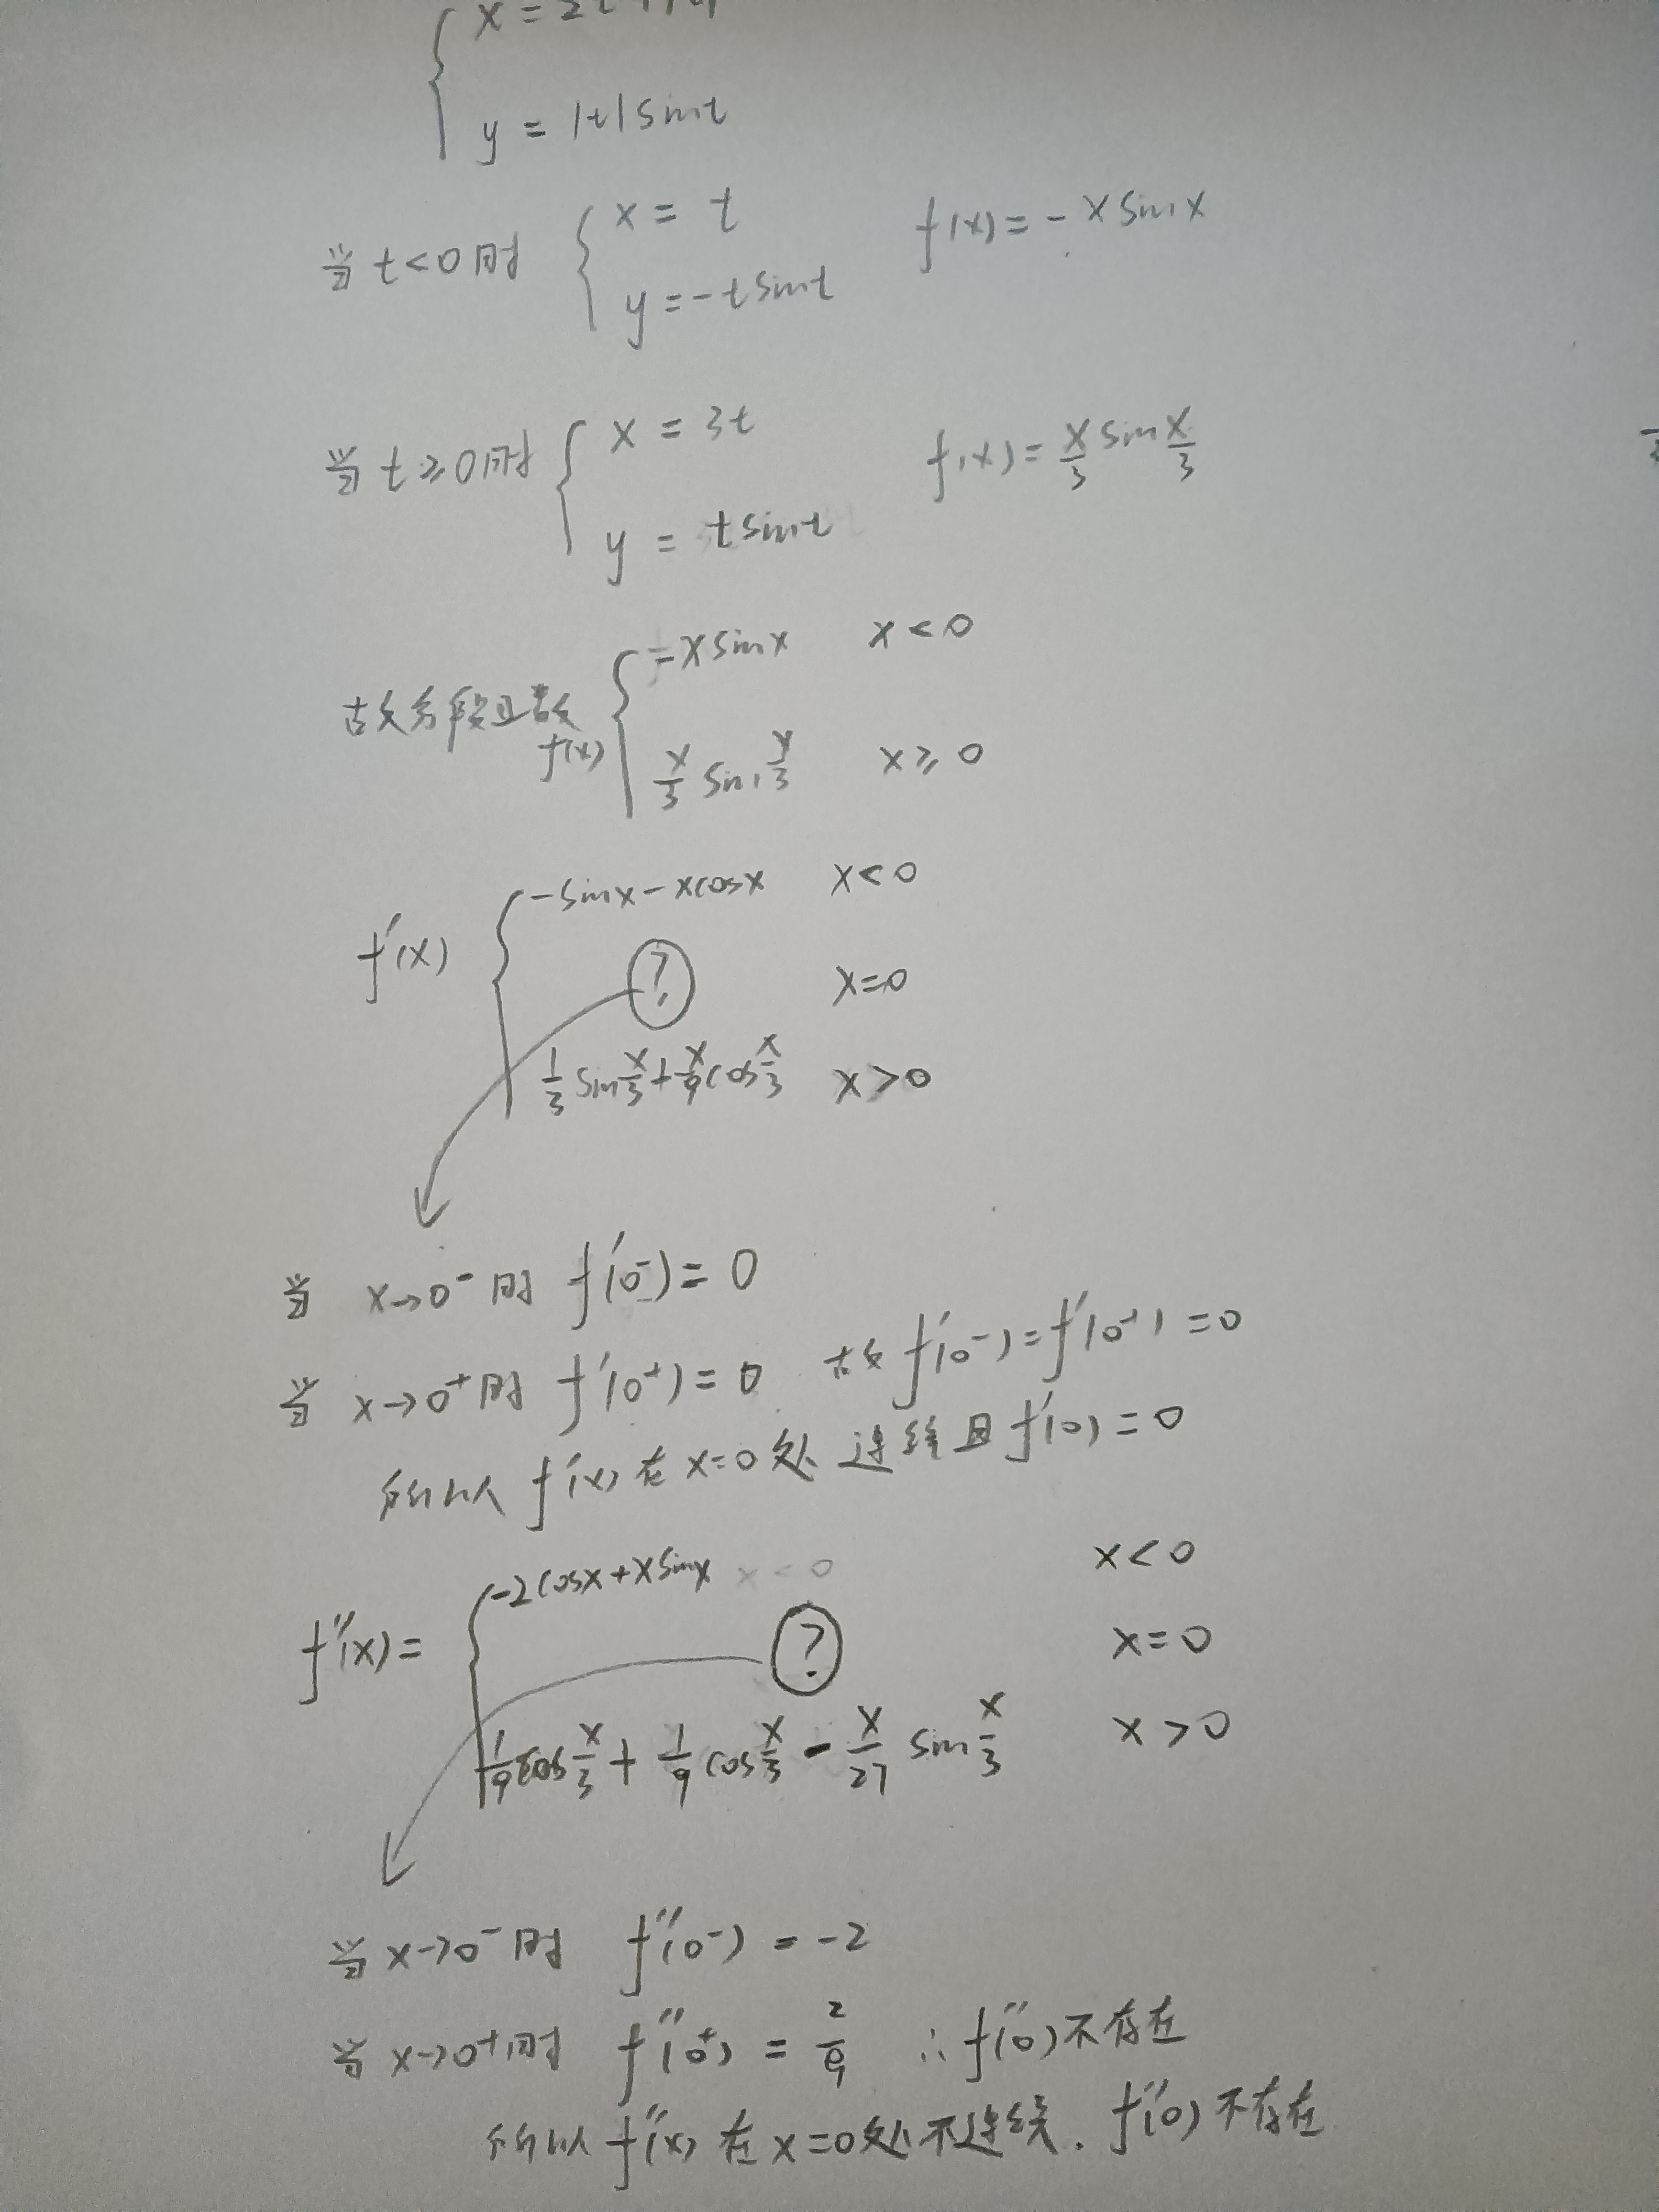 x = 2t + |t|
y = |t| sint
当 t<0时 { x = t f(x) = - x sinx
y = -t sint
当 t≥0时 { x = 3t f(x) = x/3 sin x/3
y = t sint
故分段函数 f(x) { -x sinx x<0
x/3 sin x/3 x≥0
f'(x) { -sinx - xcosx x<0
? x=0
1/3 sin x/3 + x/9 cos x/3 x>0
当 x→0⁻ 时 f'(0⁻) = 0
当 x→0⁺ 时 f'(0⁺) = 0 故 f'(0⁻) = f'(0⁺) = 0
所以 f'(x) 在 x=0 处 连续 且 f'(0) = 0
f''(x) = { -2cosx + xsinx x<0 x<0
? x=0
1/9 cos x/3 + 1/9 cos x/3 - x/27 sin x/3 x>0
当 x→0⁻ 时 f''(0⁻) = -2
当 x→0⁺ 时 f''(0⁺) = 2/9 ∴ f''(0) 不存在
所以 f''(x) 在 x=0处 不连续. f''(0) 不存在